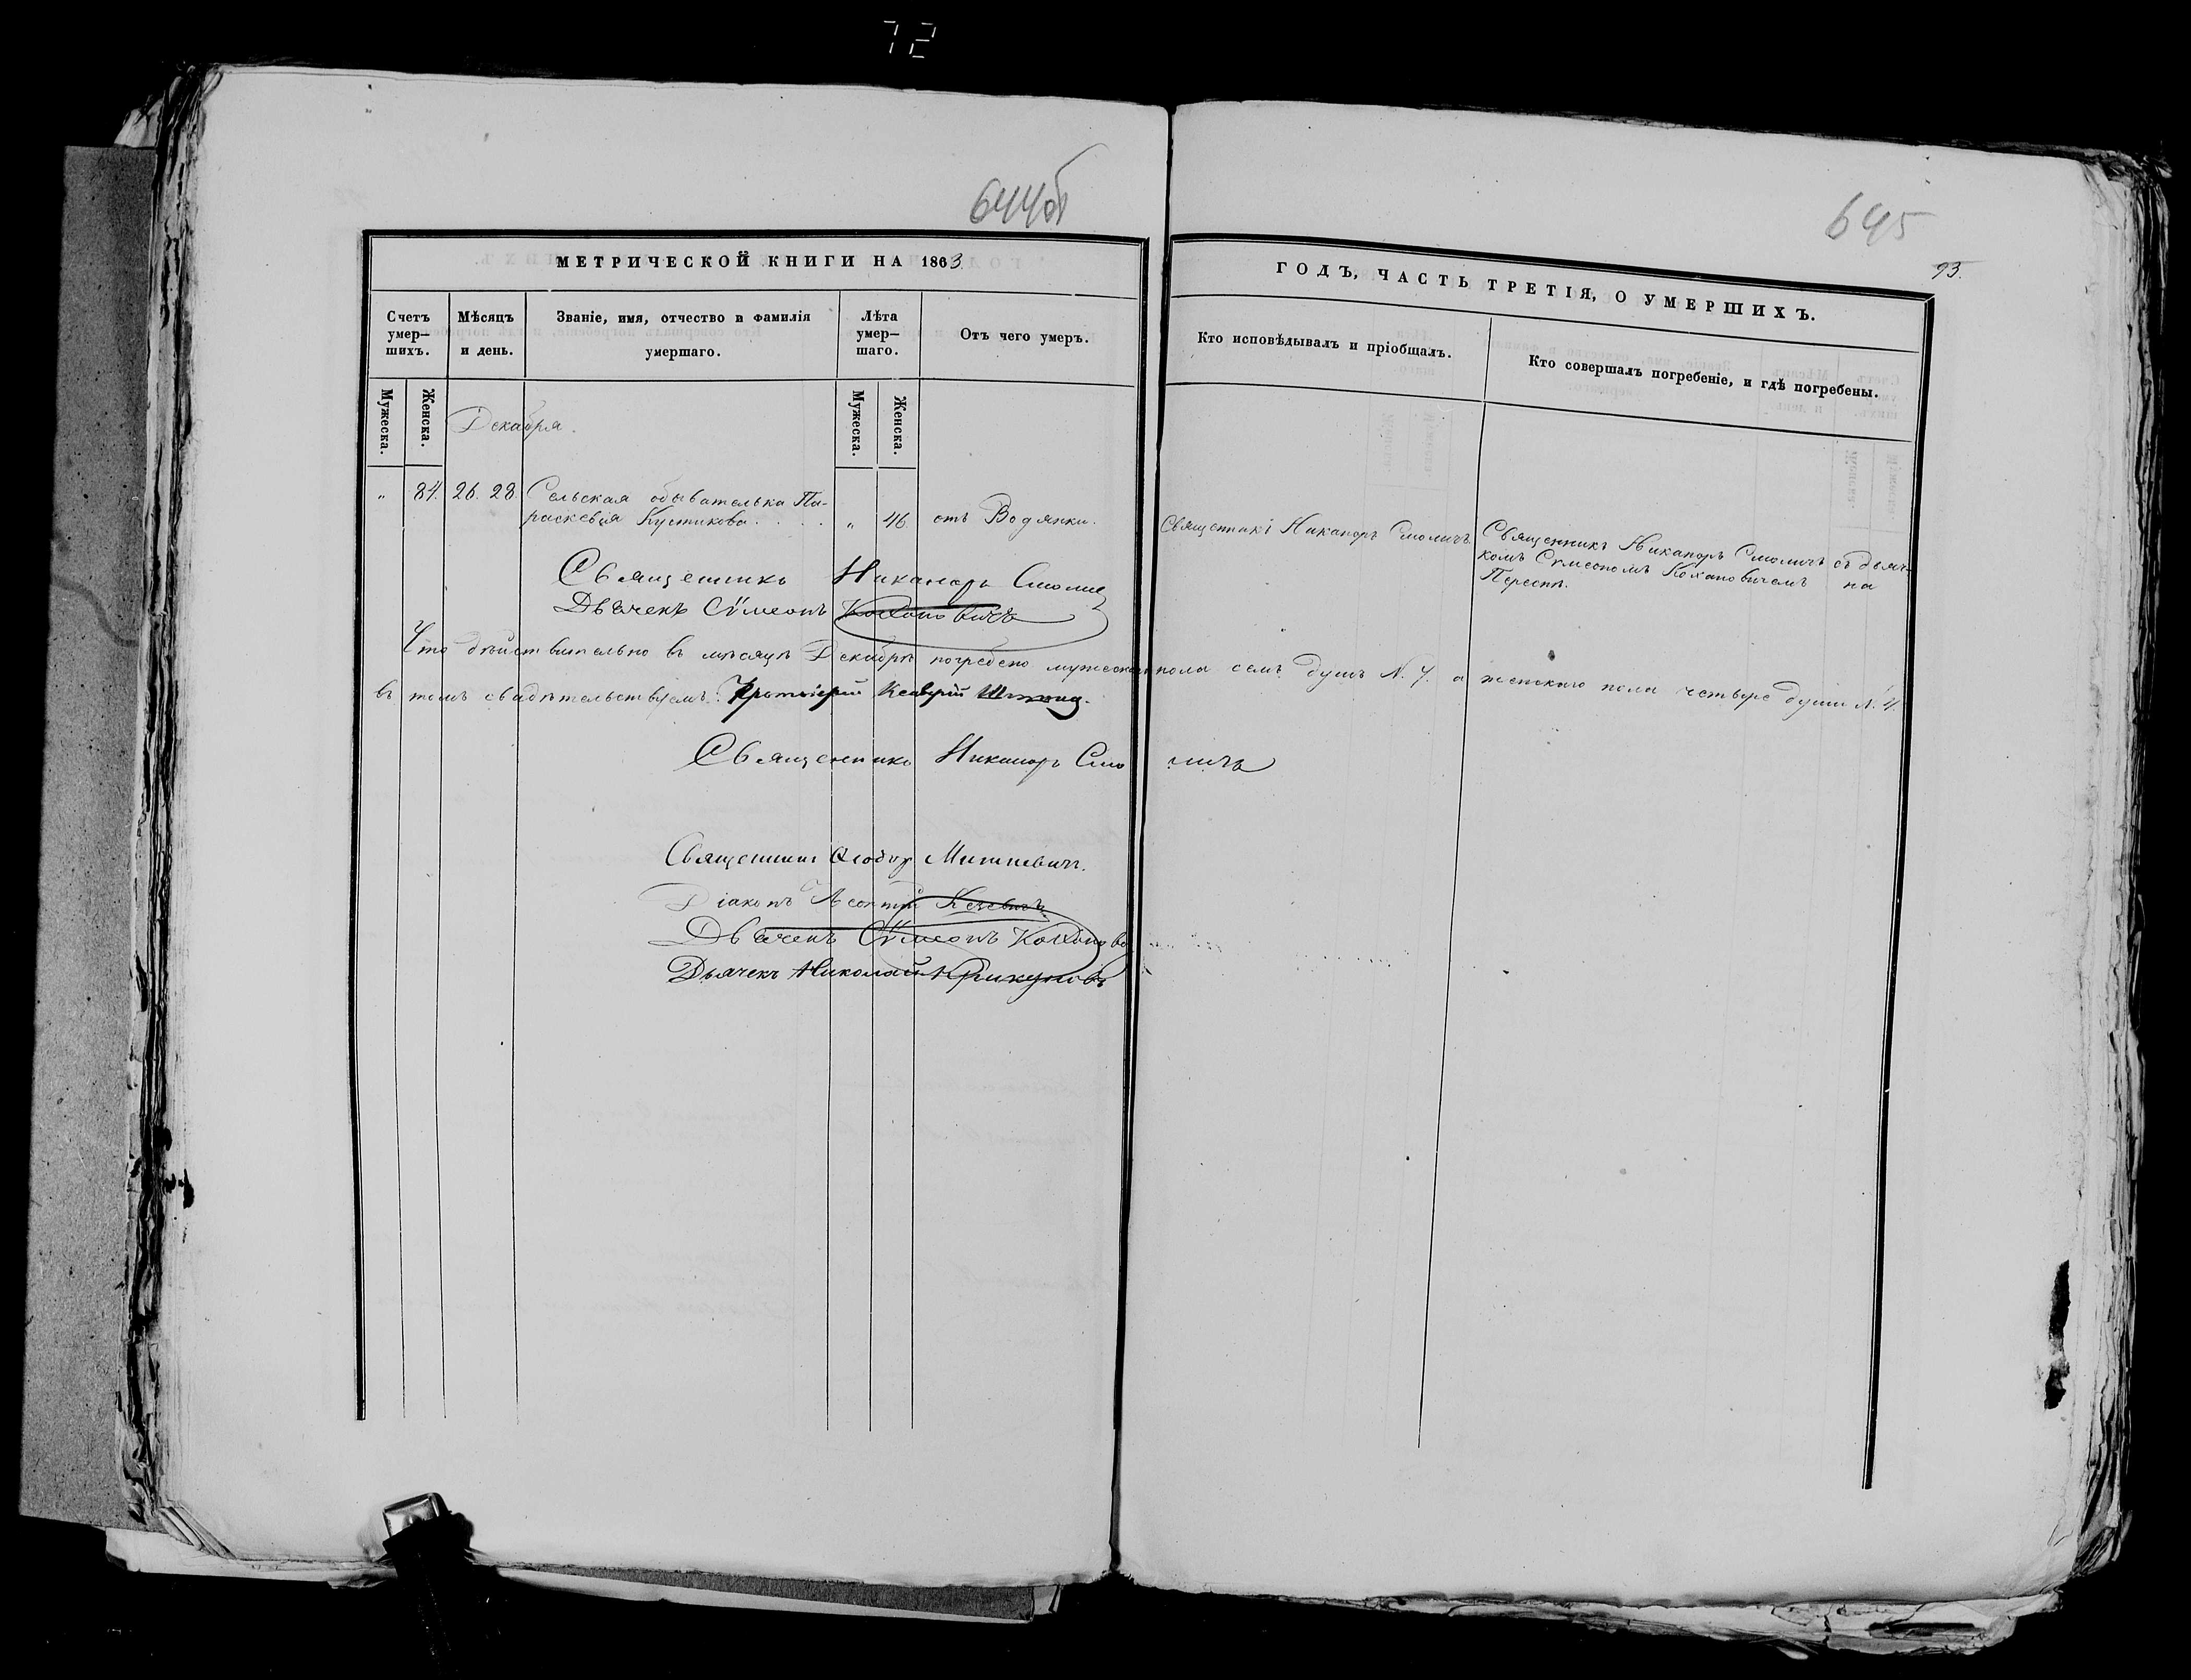 72
644об
645
93.
МЕТРИЧЕСКОЙ КНИГИ НА 1863
ГОДЪ, ЧАСТЬ ТРЕТІЯ, О УМЕРШИХЪ.
Счетъ умер–шихъ.
Мѣсяцъ и день.
Званіе, имя, отчество и фамилія умершаго.
Лѣта умер–шаго.
Отъ чего умеръ.
Кто исповѣдывалъ и пріобщалъ.
Кто совершалъ погребеніе, и гдѣ погребены.
Мужеска.
Женска.
Мужеска.
Женска.
Декабря.
" 84. 26. 28. Сельская обывателька Па-
раскевія Кустикова . . . . " 46. отъ Водянки.
Священникъ Никаноръ Смоличъ.
Священникъ Никаноръ Смоличъ съ дьяч-
комъ Сѵмеономъ Кохановичемъ на
Пересп.
Священникъ Никаноръ Смолич
Дьячекъ Сѵмеонъ Кохановичъ
Что дѣйствительно въ мѣсяцѣ Декабрѣ погребено мужескаго пола семъ душъ N. 7. а женскаго пола четыре души N. 4.
въ томъ свидѣтельствуемъ: Протоіерей
Священникъ Никаноръ Смоличъ
Священникъ Миткевичъ.
Діаконъ Леонтій
Дьячекъ Сѵмеонъ Коханов
Дьячекъ Николай Крикуновъ